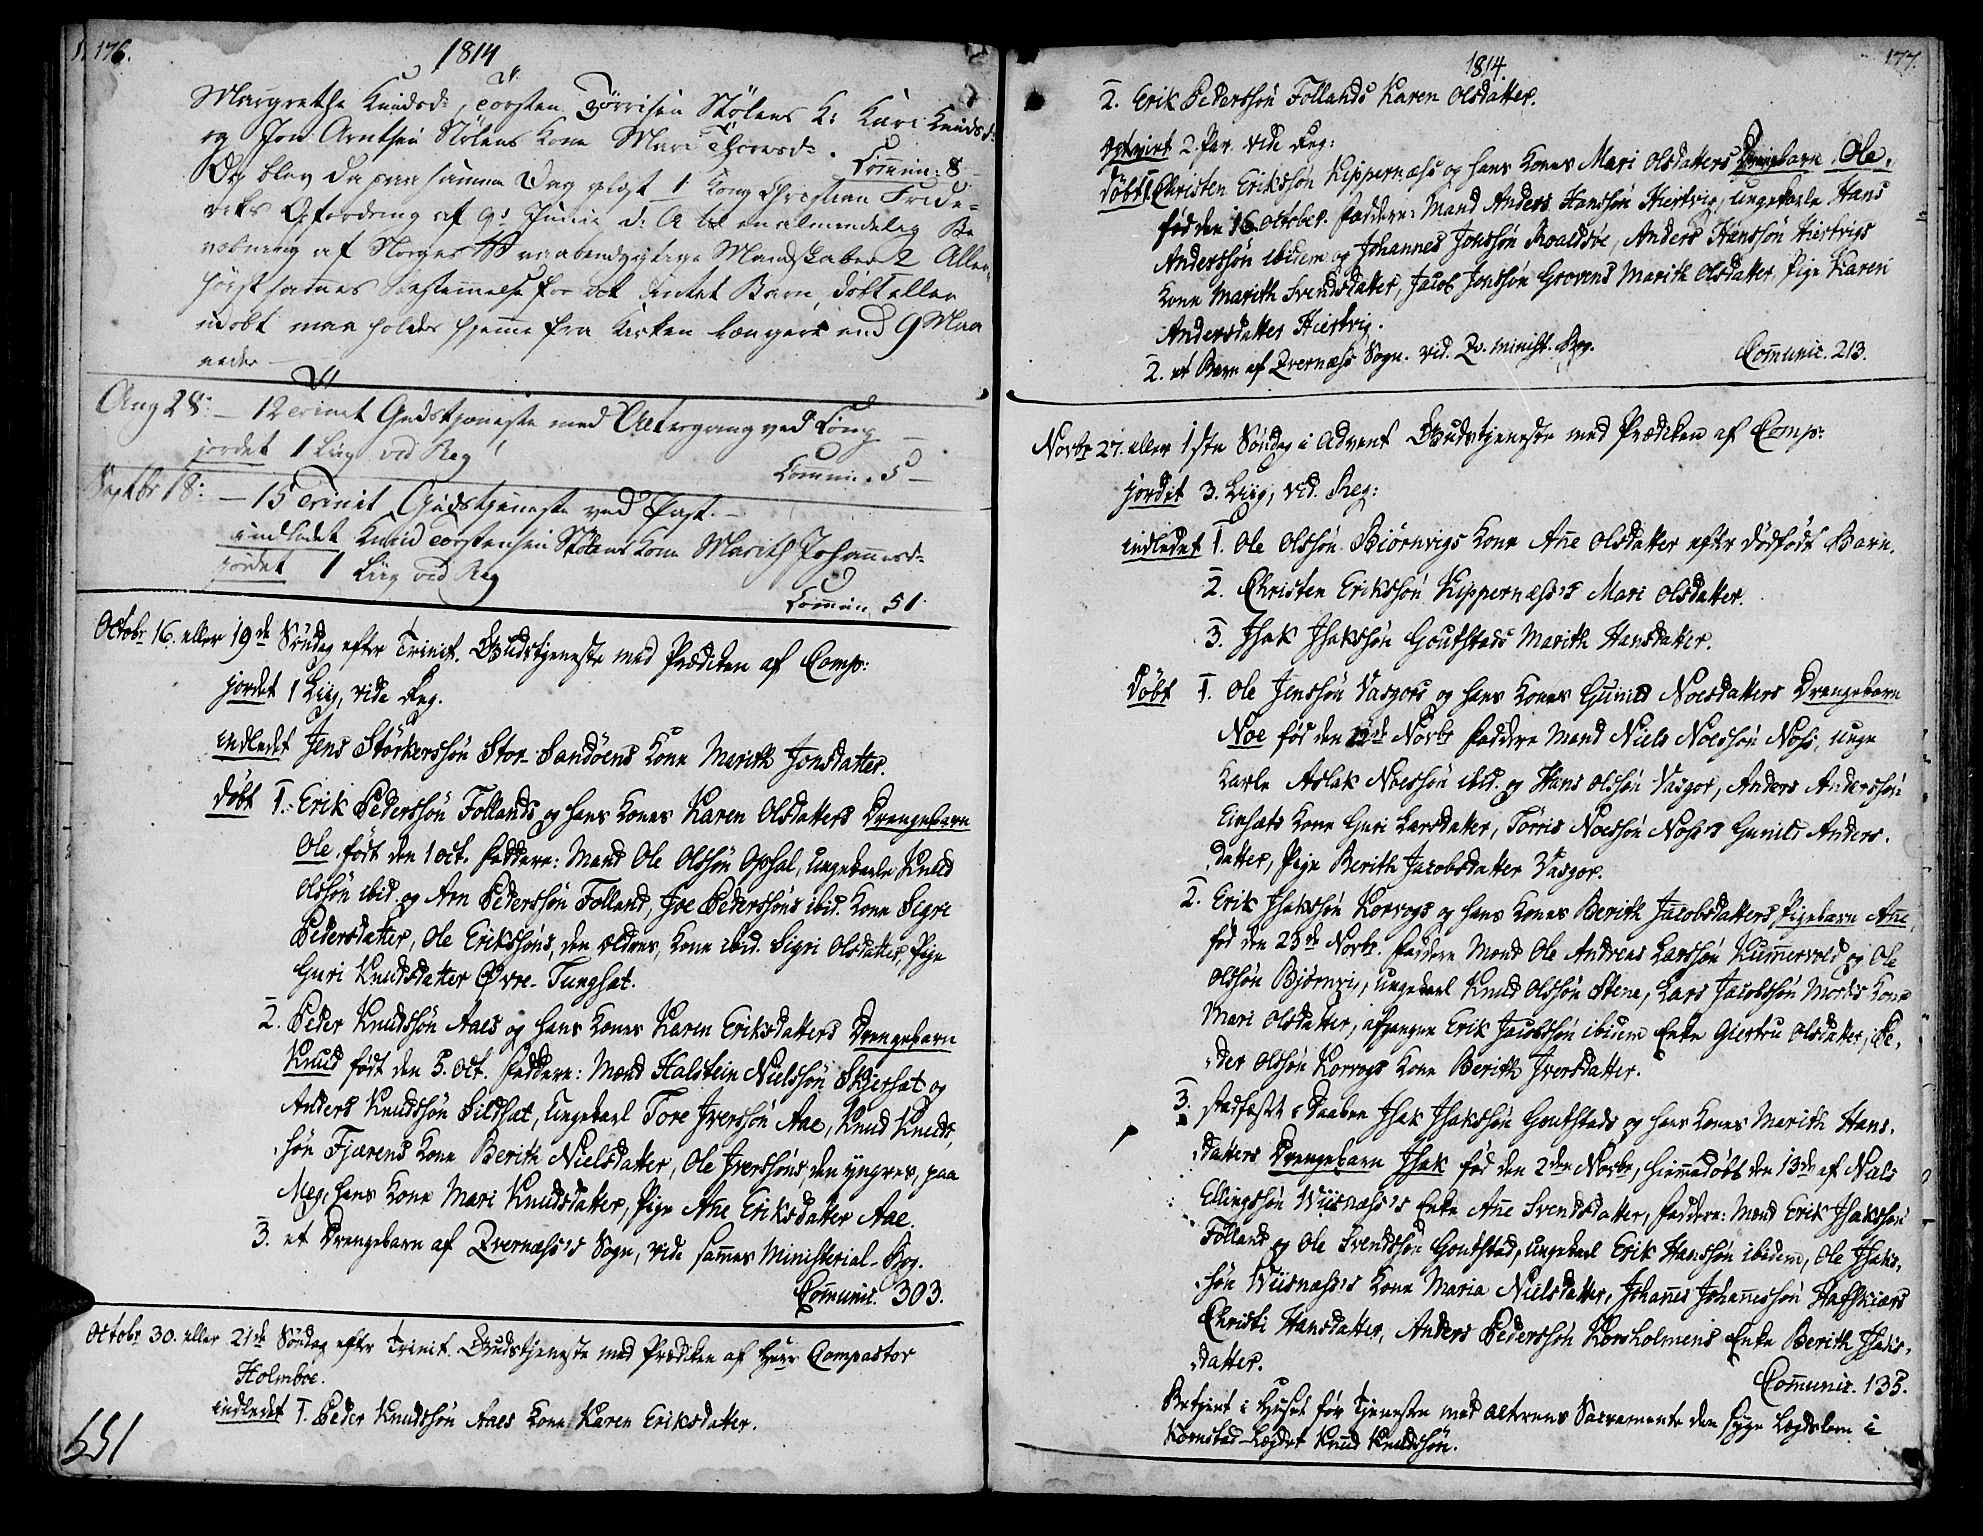 176.
1814
Margrethe Knudsd:, Torsten Tørrisen Stølens K: Kari Knudsd:
og Jon Arntsen Stølens Kone Mari Thoresd:.
Commun: 8
Og blev da paa samme Dag oplæst 1. Kong Christian Fride-
riks Opfordring af 9: Junii d: A til en almindelig Be
væbning af Norges Vaabendygtige Mandskaber 2 Aller-
høist sammes Bestemmelse for at intet Barn, døbt eller
udøbt maa holdes hjemme fra Kirken længere end 9 Maa
neder
Aug 28: — 12 Trinit Gudstjeneste med Altergang ved
jordet 1 Liig vid Reg
Commun. 5 —
Septbr 18: — 15 Trinit Gudstjeneste ved Past. —
indledet Knud Torstensen Stølens Kone Marith Johannesd:
jordet 1 Liig vid Reg
Commun. 51.
Octobr 16. eller 19de Søndag efter Trinit. Gudstjeneste med Prædiken af Comp:
jordet 1 Liig, vide Reg.
indledet Jens Størkersøn Stor-Sandøens Kone Marith Jonsdatter.
døbt 1. Erik Pederssøn Follands og hans Kones Karen Olsdatters Drengebarn
Ole, født den 1 Oct. Faddere: Mand Ole Olssøn Opsal, ungekarle Knud
Olssøn ibid. og Arn Pederssøn Folland, Joe Pederssøns ibid. Kone Sigri
Pedersdatter, Ole Erikssøns, den ældres, Kone ibid. Sigri Olsdatter, Pige
Guri Knudsdatter Øvre-Tungsæt.
2. Peder Knudssøn Aaes og hans Kones Karen Eriksdatters Drengebarn
Knud født den 5. Oct. Faddere: Mænd Halstein Nielssøn Skjersæt og
Anders Knudssøn Sildsæt, Ungekarl Tore Iverssøn Aae, Knud Knuds-
søn Fjærens Kone Berith Nielsdatter, Ole Iverssøns, den yngres, paa
Meg, hans Kone Mari Knudsdatter, Pige Ane Eriksdatter Aae.
3. et Drengebarn af Qvernæss's Sogn, vide sammes Ministerial-Bog.
Communic. 303.
Octobr 30. eller 21de Søndag efter Trinit. Gudstjeneste med Prædiken af Herr Compastor
Holmboe.
indledet 1. Peder Knudssøn Aaes Kone Karen Eriksdatter.
177.
1814.
2. Erik Pederssøn Follands Karen Olsdatter.
2 Par. vide Reg:
døbt 1. Christen Erikssøn Kippernæss og hans Kones Mari Olsdatters Drengebarn Ole,
fød den 16 October. Faddere: Mand Anders Hanssøn Hiertvig, ungekarle Hans
Anderssøn ibidem og Johannes Jonssøn Roaldsøe, Anders Hanssøn Hiertvigs
Kone Marith Svendsdatter, Jacob Jonssøn Grovens Marith Olsdatter, Pige Karen
Andersdatter Hiertvig.
2. et Barn af Qvernæss Sogn. vid. Qv. minist. Bog.
Communic. 213.
Novbr 27. eller 1ste Søndag i Advent Gudstjeneste med Prædiken af Comp:
jordet 3. Liig, vid. Reg:
indledet 1. Ole Olssøn Biørnvigs Kone Ane Olsdatter efter dødfødt Barn.
2. Christen Erikssøn Kippernæss's Mari Olsdatter.
3. Isak Isakssøn Goutstads Marith Hansdatter.
døbt 1. Ole Jenssøn Vasgors og hans Kones Gunild Noesdatters Drengebarn
Noe fød den Novbr Faddere Mand Niels Noessøn Nohs, unge
karle Aslak Noessøn ibid. og Hans Olssøn Vasgor, Anders Anderssøn
Einsæts Kone Guri Larsdatter, Tørris Noessøn Nohs's Gunild Anders-
datter, Pige Berith Jacobsdatter Vasgor.
2. Erik Isakssøn Korvogs og hans Kones Berith Jacobsdatters Pigebarn Ane,
fød den 23de Novbr. Faddere Mænd Ole Andreas Larssøn Kummervold og Ole
Olssøn Bjørnvig, ungekarl Knud Olssøn Stene, Lars Jacobssøn Mordts Kone
Mari Olsdatter, afgangne Erik Jacobssøn ibidem Enke Giertru Olsdatter, Pe-
der Olssøn Korvogs Kone Berith Iversdatter.
3. stadfæstet i Daaben Isak Isakssøn Goutstads og hans Kones Marith Hans-
datters Drengebarn Isak fød den 2den Novbr, hiemmedøbt den 13de af Niels
Ellingssøn Wiisnæss's Enke Ane Svendsdatter, Faddere: Mænd Erik Isakssøn
Folland og Ole Svendssøn Goutstad, ungekarl Erik Hanssøn ibidem, Ole Isak-
søn Wiisnæss's Kone Maria Nielsdatter, Johanes Johanessøn Hafskiærs
Christi Hansdatter, Anders Pederssøn Korsholmens Enke Berith Isaks-
datter.
Communic. 135.
Betjent i Huset før Tjenesten med Alterens Sacramente den syge Lægdslem i
Kornstad-Lægdet Knud Knudssøn.